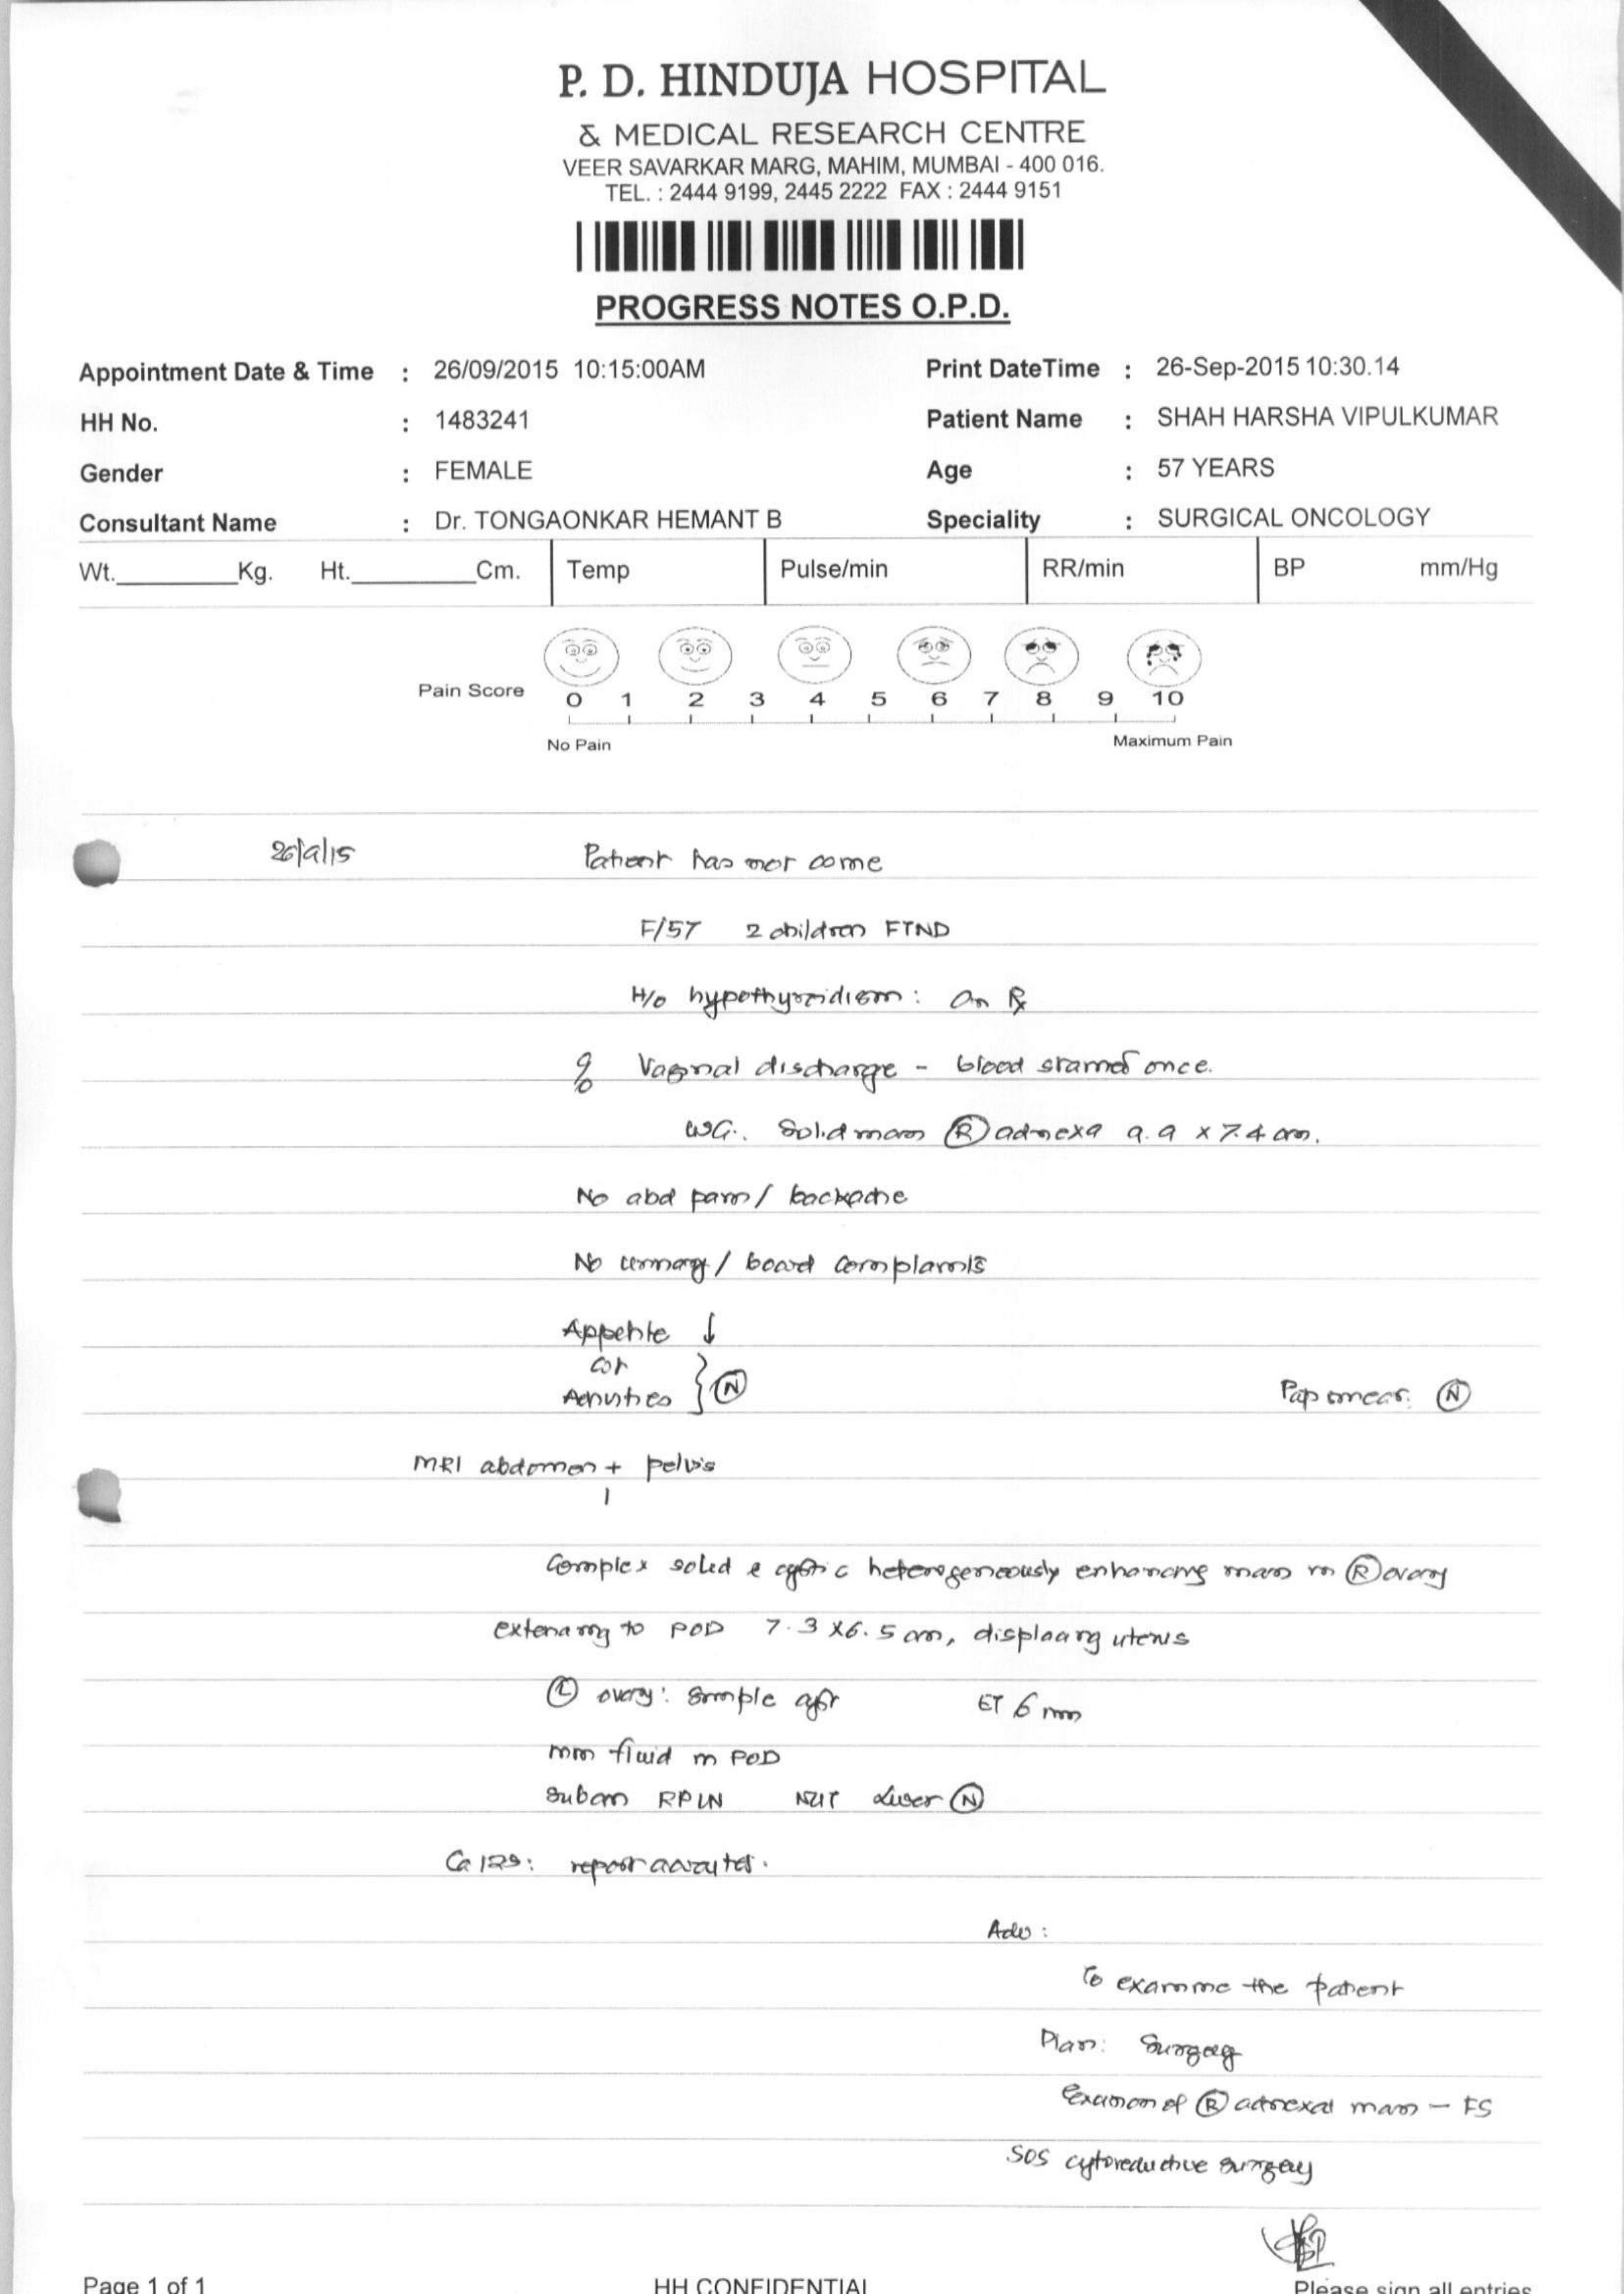 P. D. HINDUJA HOSPITAL
& MEDICAL RESEARCH CENTRE
VEER SAVARKAR MARG, MAHIM, MUMBAI - 400 016.
TEL. : 2444 9199, 2445 2222 FAX : 2444 9151
PROGRESS NOTES O.P.D.
Appointment Date & Time : 26/09/2015 10:15:00AM Print DateTime : 26-Sep-2015 10:30.14
HH No. : 1483241 Patient Name : SHAH HARSHA VIPULKUMAR
Gender : FEMALE Age : 57 YEARS
Consultant Name : Dr. TONGAONKAR HEMANT B Speciality : SURGICAL ONCOLOGY
Wt.________Kg. Ht.________Cm. Temp Pulse/min RR/min BP mm/Hg
Pain Score 0 1 2 3 4 5 6 7 8 9 10
No Pain Maximum Pain
26/9/15 Patient has not come
F/57 2 children FTND
H/o hypothyroidism : On Rx
c/o Vaginal discharge - blood stained once.
USG. Solid mass (R) adnexa 9.9 x 7.4 cm.
No abd pain / backache
No urinary / bowel complaints
Appetite ↓
wt
Activities } (N) Pap smear: (N)
MRI abdomen + pelvis
Complex solid & cystic heterogeneously enhancing mass in (R) ovary
extending to POD 7.3 x 6.5 cm, displacing uterus
(L) ovary: simple cyst ET 6 mm
min fluid in POD
subcm RPLN Liver (N)
Ca 125: report awaited.
Adv :
To examine the patient
Plan: Surgery
Excision of (R) adnexal mass — FS
SOS cytoreductive surgery
Page 1 of 1 HH CONFIDENTIAL Please sign all entries